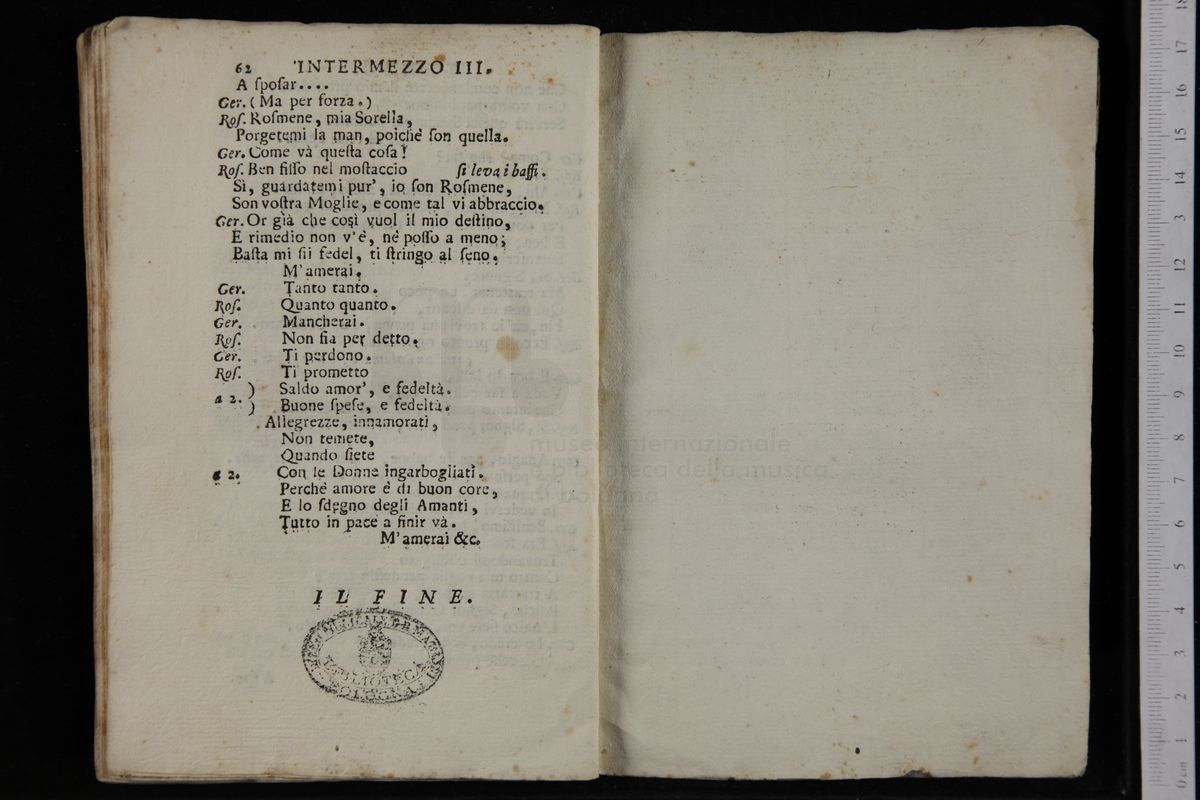 62 'INTERMEZZO III.
A ſpoſar....
Ger. (Ma per forza.)
Roſ. Roſmene, mia Sorella,
Porgetemi la man, poichè ſon quella.
Ger. Come và queſta coſa!
Roſ. Ben fiſſo nel moſtaccio ſi leva i baffi.
Sì, guardatemi pur', io ſon Roſmene,
Son voſtra Moglie, e come tal vi abbraccio.
Ger. Or già che così vuol il mio deſtino,
E rimedio non v'è, nè poſſo a meno;
Baſta mi ſii fedel, ti ſtringo al ſeno.
M'amerai.
Ger. Tanto tanto.
Roſ. Quanto quanto.
Ger. Mancherai.
Roſ. Non ſia per detto.
Ger. Ti perdono.
Roſ. Ti prometto
a 2. ) Saldo amor', e fedeltà.
) Buone ſpeſe, e fedeltà.
Allegrezze, innamorati,
Non temete,
Quando ſiete
a 2. Con le Donne ingarbogliati.
Perchè amore è di buon core,
E lo ſdegno degli Amanti,
Tutto in pace a finir và.
M'amerai &c.
IL FINE.
BIBLIOTECA
BOLOGNA
museo internazionale
e biblioteca della musica
di bologna